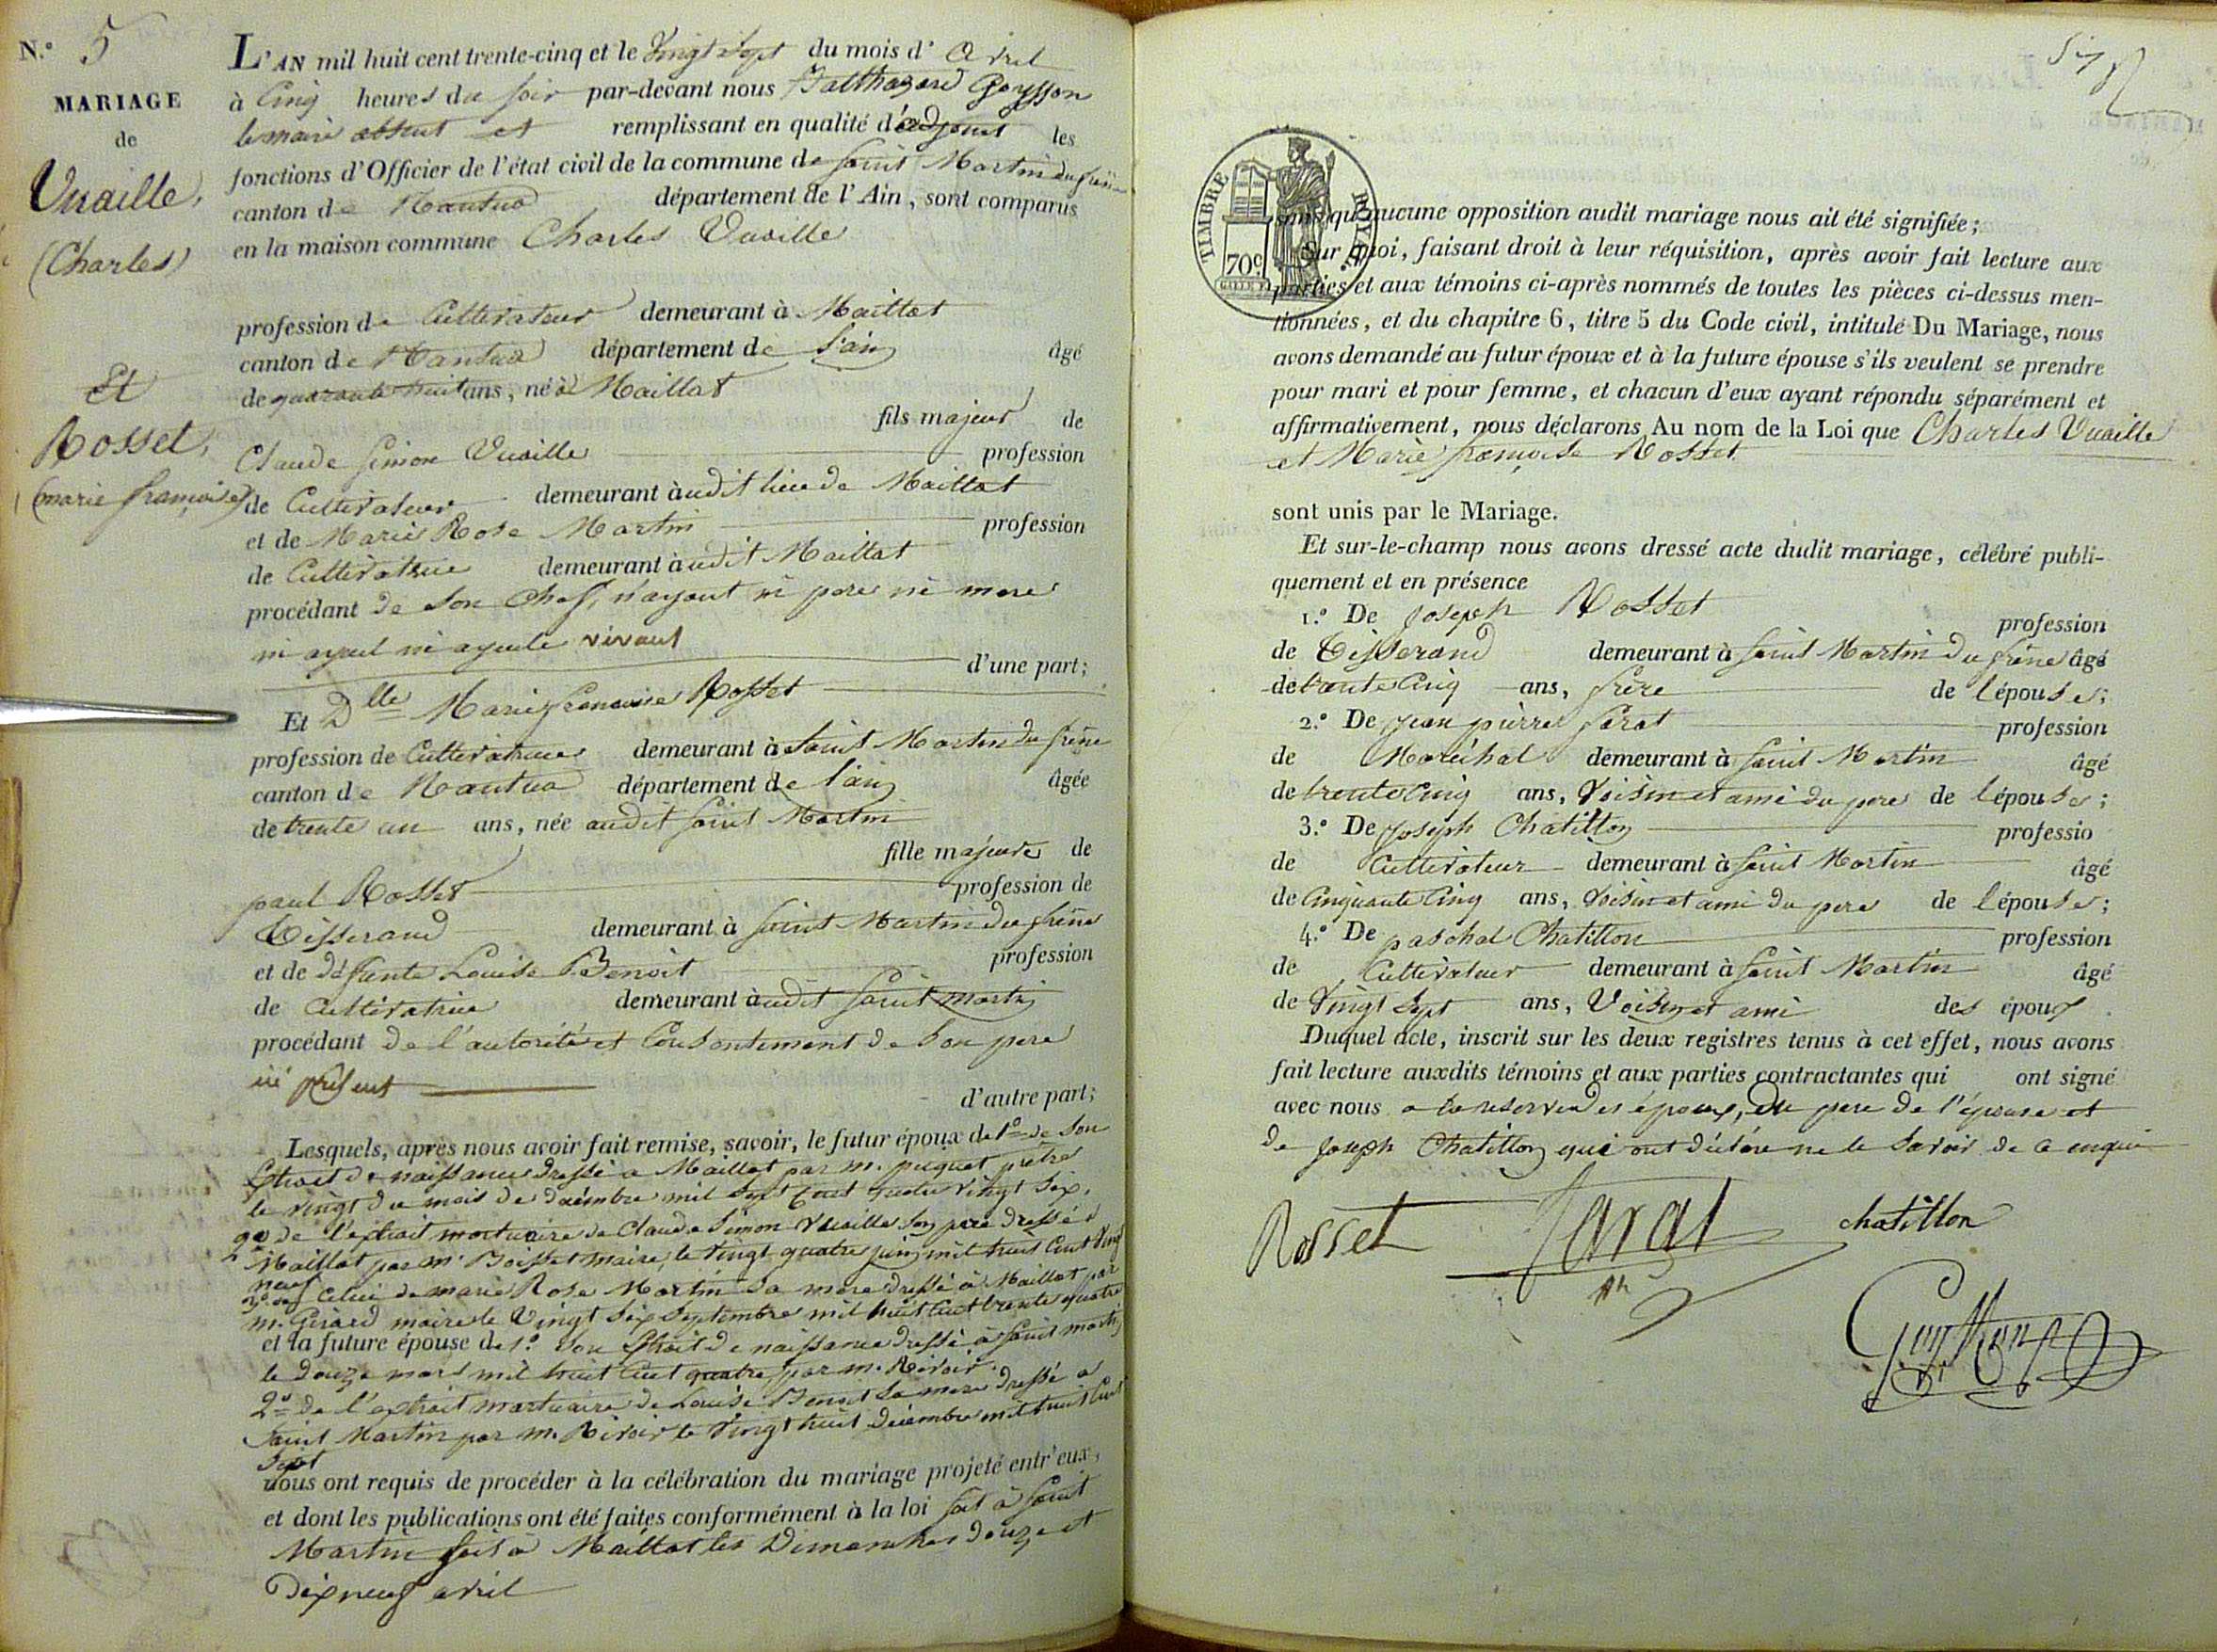 N.° 5
MARIAGE
de
Vuaille,
(Charles)
Et
Rosset,
(marie françoise)
L'AN mil huit cent trente-cinq et le Vingt Sept du mois d' avril
à Cinq heures du soir par-devant nous Balthazard
le maire absent et remplissant en qualité d'adjoint les
fonctions d'Officier de l'état civil de la commune de saint Martin du frêne
canton de Nantua département de l'Ain, sont comparus
en la maison commune Charles Vuaille
profession de Cultivateur demeurant à Maillat
canton de Nantua département de l'ain âgé
de quarante huit ans, né à Maillat
fils majeur de
Claude Simon Vuaille profession
de Cultivateur demeurant audit lieu de Maillat
et de Marie Rose Martin profession
de Cultivatrice demeurant audit Maillat
procédant de son Chef, n'ayant ni pere ni mere
ni ayeul ni ayeule vivant
d'une part;
Et Dlle Marie francoise Rosset
profession de Cultivatrice demeurant à saint Martin du frêne
canton de Nantua département de l'ain âgée
de trente un ans, née audit saint Martin
fille majeure de
paul Rosset profession de
Tisserand demeurant à saint Martin du frêne
et de défunte Louise Benoit profession
de Cultivatrice demeurant audit saint martin
procédant de l'autorité et Consentement de son pere
ici présent
d'autre part;
Lesquels, après nous avoir fait remise, savoir, le futur époux de 1° de son
Extrait de naissance dressé a Maillat par m. puquet prêtre
le vingt du mois de décembre mil sept Cent quatre vingt six.
2° de l'extrait mortuaire de Claude Simon Vuaille son pere dressé à
Maillat par m. Boisset maire, le vingt quatre juin mil huit Cent vingt
neuf
3° celui de marie Rose Martin sa mere dressé à Maillat par
m. Girard maire le Vingt six septembre mil huit Cent trente quatre
et la future épouse de 1.° son Extrait de naissance dressé à saint martin
le douze mars mil huit Cent quatre par m. Rivoir.
2° de l'extrait mortuaire de Louise Benoit sa mere dressé a
saint Martin par m. Rivoir le Vingt huit décembre mil huit Cent
Sept
nous ont requis de procéder à la célébration du mariage projeté entr'eux,
et dont les publications ont été faites conformément à la loi soit à saint
Martin soit à Maillat les Dimanches douze et
Dix neuf avril
TIMBRE ROYAL
70c
sans qu'aucune opposition audit mariage nous ait été signifiée;
Sur quoi, faisant droit à leur réquisition, après avoir fait lecture aux
parties et aux témoins ci-après nommés de toutes les pièces ci-dessus men-
tionnées, et du chapitre 6, titre 5 du Code civil, intitulé Du Mariage, nous
avons demandé au futur époux et à la future épouse s'ils veulent se prendre
pour mari et pour femme, et chacun d'eux ayant répondu séparément et
affirmativement, nous déclarons Au nom de la Loi que Charles Vuaille
et Marie françoise Rosset
sont unis par le Mariage.
Et sur-le-champ nous avons dressé acte dudit mariage, célébré publi-
quement et en présence
1.° De Joseph Rosset profession
de Tisserand demeurant à saint Martin du frêne âgé
de trente Cinq ans, frère de l'épouse;
2.° De Jean pierre profession
de Maréchal demeurant à saint Martin âgé
de trente Cinq ans, Voisin et ami du pere de l'épouse;
3.° De Joseph Chatillon professio
de Cultivateur demeurant à saint Martin âgé
de Cinquante Cinq ans, Voisin et ami du pere de l'épouse;
4.° De paschal Chatillon profession
de Cultivateur demeurant à saint Martin âgé
de Vingt Sept ans, Voisin et ami des époux
Duquel acte, inscrit sur les deux registres tenus à cet effet, nous avons
fait lecture auxdits témoins et aux parties contractantes qui ont signé
avec nous a la reserve des époux, du pere de l'épouse et
de Joseph Chatillon qui ont déclaré ne le Savoir de ce enquis
Rosset
chatillon